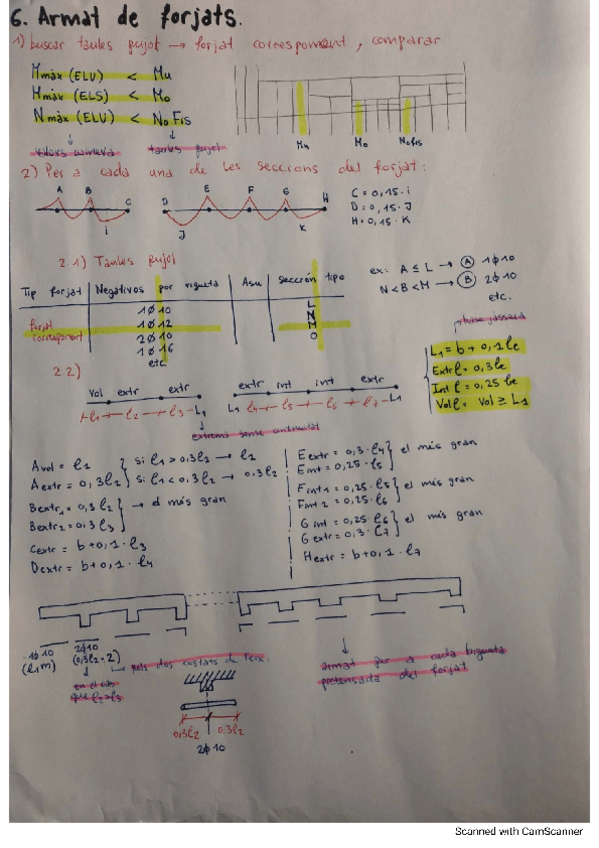 6. Armat de forjats.
1) buscar taules pujol → forjat corresponent, comparar
Mmàx (ELU) < Mu
Mmàx (ELS) < Mo
Nmàx (ELU) < No Fis
valors wineva taules pujol
Mu Mo Nofis
2) Per a cada una de les seccions del forjat:
A B C D E F G H
i J K
C = 0,15 · i
D = 0,15 · J
H = 0,15 · K
2.1) Taules pujol
Tip forjat Negativos por vigueta Asu sección tipo
forjat corresponent
1Ø10 L
1Ø12 N
2Ø10 M
1Ø16 O
etc.
ex: A ≤ L → A 1Ø10
N<B<M → B 2Ø10
etc.
2.2)
Vol extr extr extr int int extr
l1 l2 l3 L1 L1 l4 l5 l5 l7 L1
extrems sense continuïtat
L1 = b + 0,1 le
Extr l = 0,3 le
Int l = 0,25 le
Vol l = Vol ≥ L1
A vol = l1
A extr = 0,3 l2
si l1 > 0,3 l2 → l1
si l1 < 0,3 l2 → 0,3 l2
Bextr1 = 0,3 l2
Bextr2 = 0,3 l3
→ el més gran
Cextr = b+0,1 · l3
Dextr = b+0,1 · l4
E extr = 0,3 · l4
E int = 0,25 · l5
el més gran
Fint1 = 0,25 · l5
Fint2 = 0,25 · l6
el més gran
G int = 0,25 · l6
G extr = 0,3 · l7
el més gran
Hextr = b+0,1 · l7
1Ø10 2Ø10
(l1 m) (0,3l2·2)
en el cas que l2>l3
pels dos costats de l'eix.
0,3l2 0,3l2
2Ø10
armat per a cada bigueta
pretensada del forjat
Scanned with CamScanner